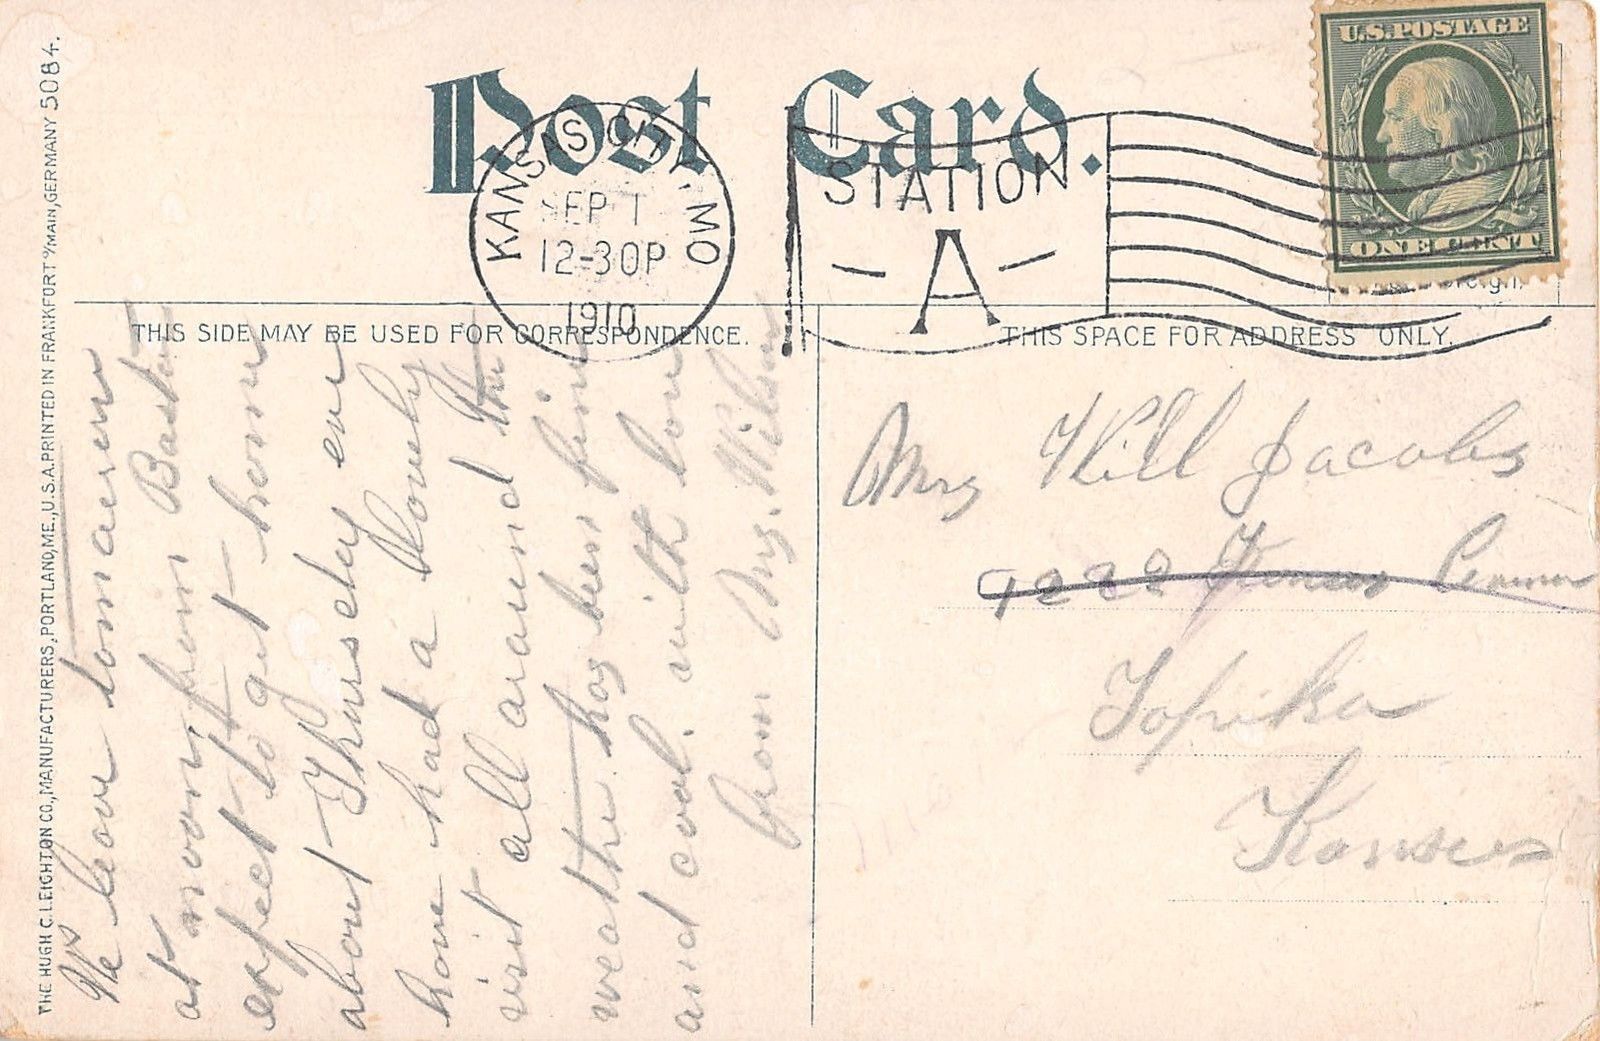 THE HUGH C. LEIGHTON CO., MANUFACTURERS, PORTLAND, ME., U.S.A. PRINTED IN FRANKFORT o/MAIN, GERMANY 5084.
Post Card.
KANSAS CITY, MO
SEP 1
12-30P
1910
STATION
- A -
U.S. POSTAGE
ONE CENT
THIS SIDE MAY BE USED FOR CORRESPONDENCE.
THIS SPACE FOR ADDRESS ONLY.
We leave tomarrow
at noon from
expect to get home
about Thursday eve
have had a lovely
visit all around the
weather has been fine
and cool. with love
from Mrs. Wilson
Mrs Will Jacobs
Topeka
Kansas